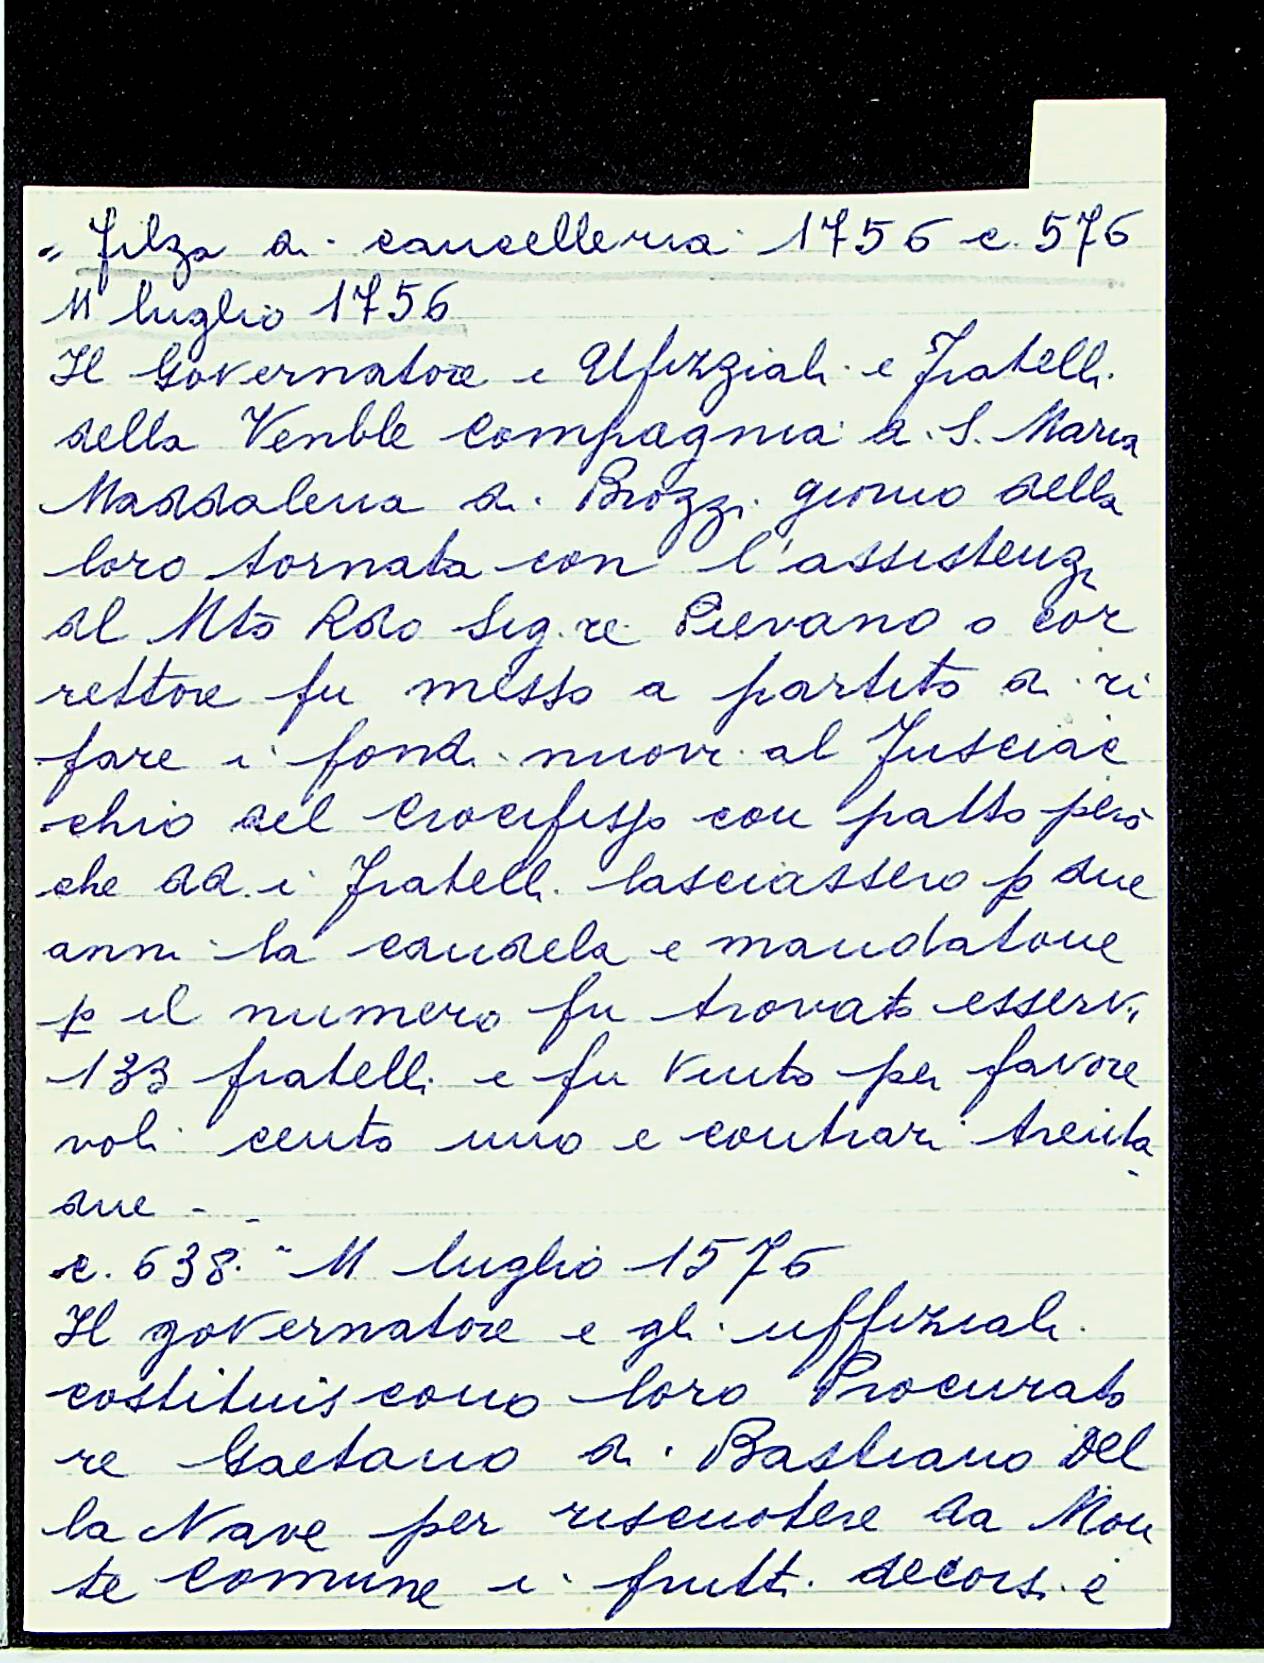 " filza di cancelleria 1756 c. 576
11 luglio 1756
Il Governatore e Ufizziali e Fratelli
della Venble Compagnia di S. Maria
Maddalena di Brozzi giorno della
loro tornata con l'assistenza
del Mto Rdo Sig.re Pievano o cor
rettore fu messo a partito di ri
fare i fondi nuovi al
chio del Crocifisso con patto però
che dd. i Fratelli lasciassero p due
anni la candela e mandatone
p il numero fu trovato esservi
133 fratelli e fu vinto per favore
voli cento uno e contrari trenta
due - -
c. 638. " 11 luglio 1576
Il governatore e gli uffiziali
costituiscono loro Procurato
re Gaetano di Bastiano Del
la Nave per riscuotere da Mon
te Comune i frutti decorsi e